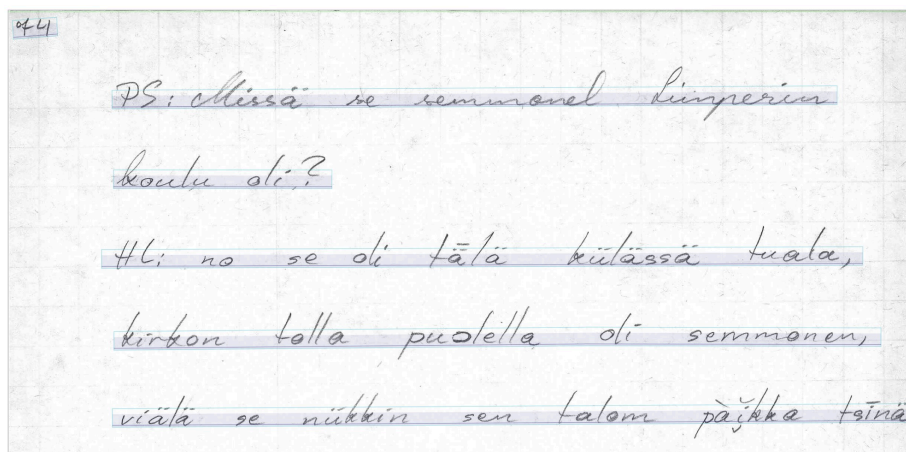 74
PS: Missä se semmonel Limperin
koulu oli?
HL: no se oli tälä külässä tuala,
kirkon tolla puolella oli semmonen,
viälä se nükkin sen talom pàĭ̯kka tsīnä